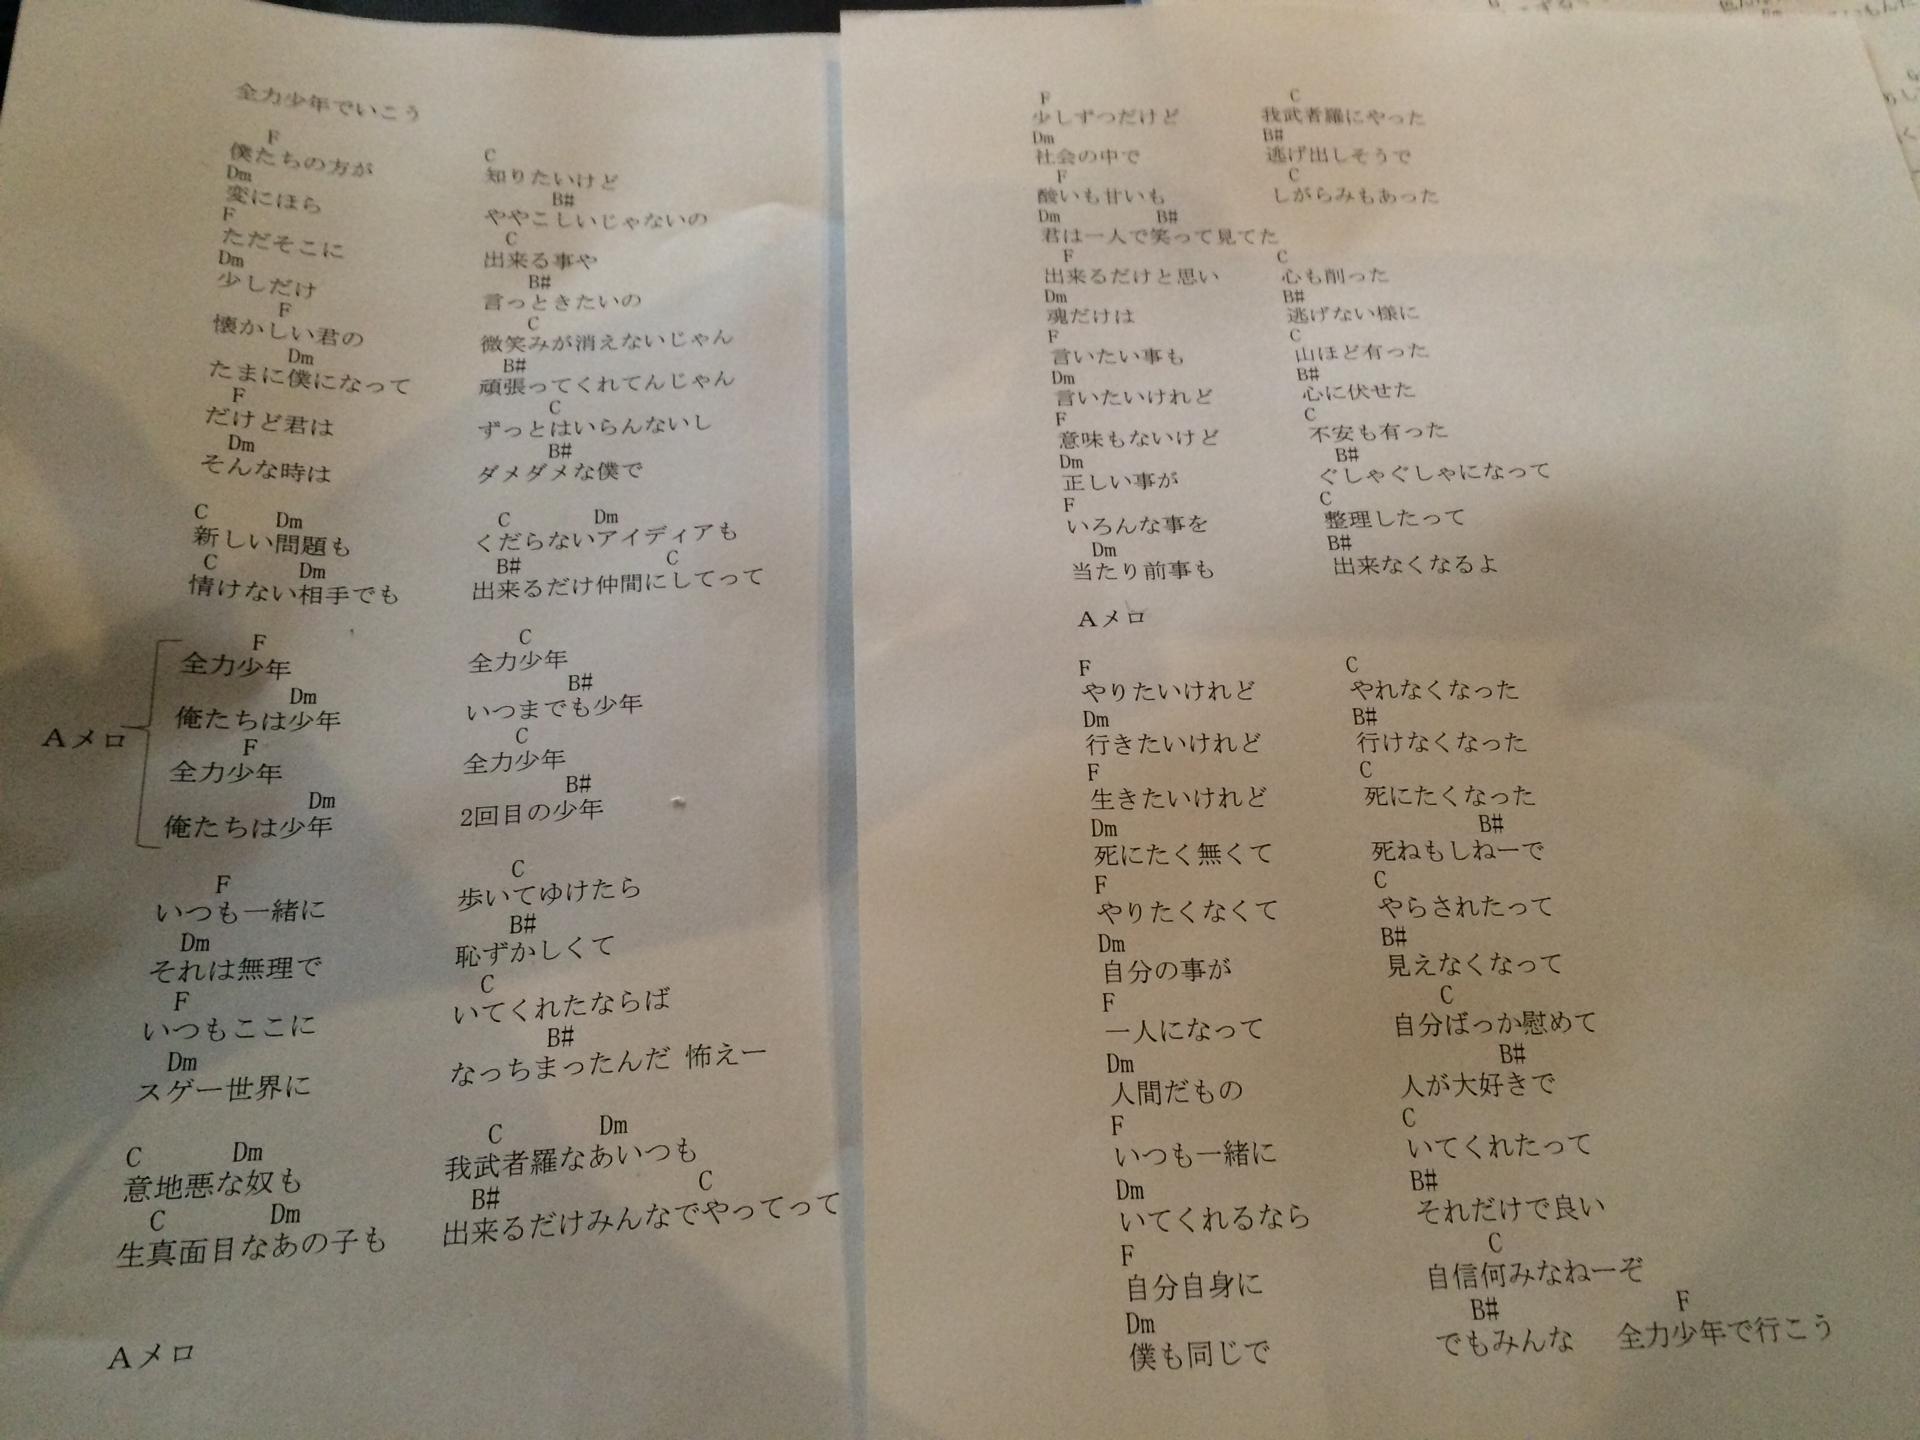 全力少年でいこう
F C
僕たちの方が 知りたいけど
Dm B#
変にほら ややこしいじゃないの
F C
ただそこに 出来る事や
Dm B#
少しだけ 言っときたいの
F C
懐かしい君の 微笑みが消えないじゃん
Dm B#
たまに僕になって 頑張ってくれてんじゃん
F C
だけど君は ずっとはいらんないし
Dm B#
そんな時は ダメダメな僕で
C Dm C Dm
新しい問題も くだらないアイディアも
C Dm B# C
情けない相手でも 出来るだけ仲間にしてって
F C
全力少年 全力少年
Dm B#
俺たちは少年 いつまでも少年
Aメロ
F C
全力少年 全力少年
Dm B#
俺たちは少年 2回目の少年
F C
いつも一緒に 歩いてゆけたら
Dm B#
それは無理で 恥ずかしくて
F C
いつもここに いてくれたならば
Dm B#
スゲー世界に なっちまったんだ 怖えー
C Dm C Dm
意地悪な奴も 我武者羅なあいつも
C Dm B# C
生真面目なあの子も 出来るだけみんなでやってって
Aメロ
F C
少しずつだけど 我武者羅にやった
Dm B#
社会の中で 逃げ出しそうで
F C
酸いも甘いも しがらみもあった
Dm B#
君は一人で笑って見てた
F C
出来るだけと思い 心も削った
Dm B#
魂だけは 逃げない様に
F C
言いたい事も 山ほど有った
Dm B#
言いたいけれど 心に伏せた
F C
意味もないけど 不安も有った
Dm B#
正しい事が ぐしゃぐしゃになって
F C
いろんな事を 整理したって
Dm B#
当たり前事も 出来なくなるよ
Aメロ
F C
やりたいけれど やれなくなった
Dm B#
行きたいけれど 行けなくなった
F C
生きたいけれど 死にたくなった
Dm B#
死にたく無くて 死ねもしねーで
F C
やりたくなくて やらされたって
Dm B#
自分の事が 見えなくなって
F C
一人になって 自分ばっか慰めて
Dm B#
人間だもの 人が大好きで
F C
いつも一緒に いてくれたって
Dm B#
いてくれるなら それだけで良い
F C
自分自身に 自信何みなねーぞ
Dm B# F
僕も同じで でもみんな 全力少年で行こう